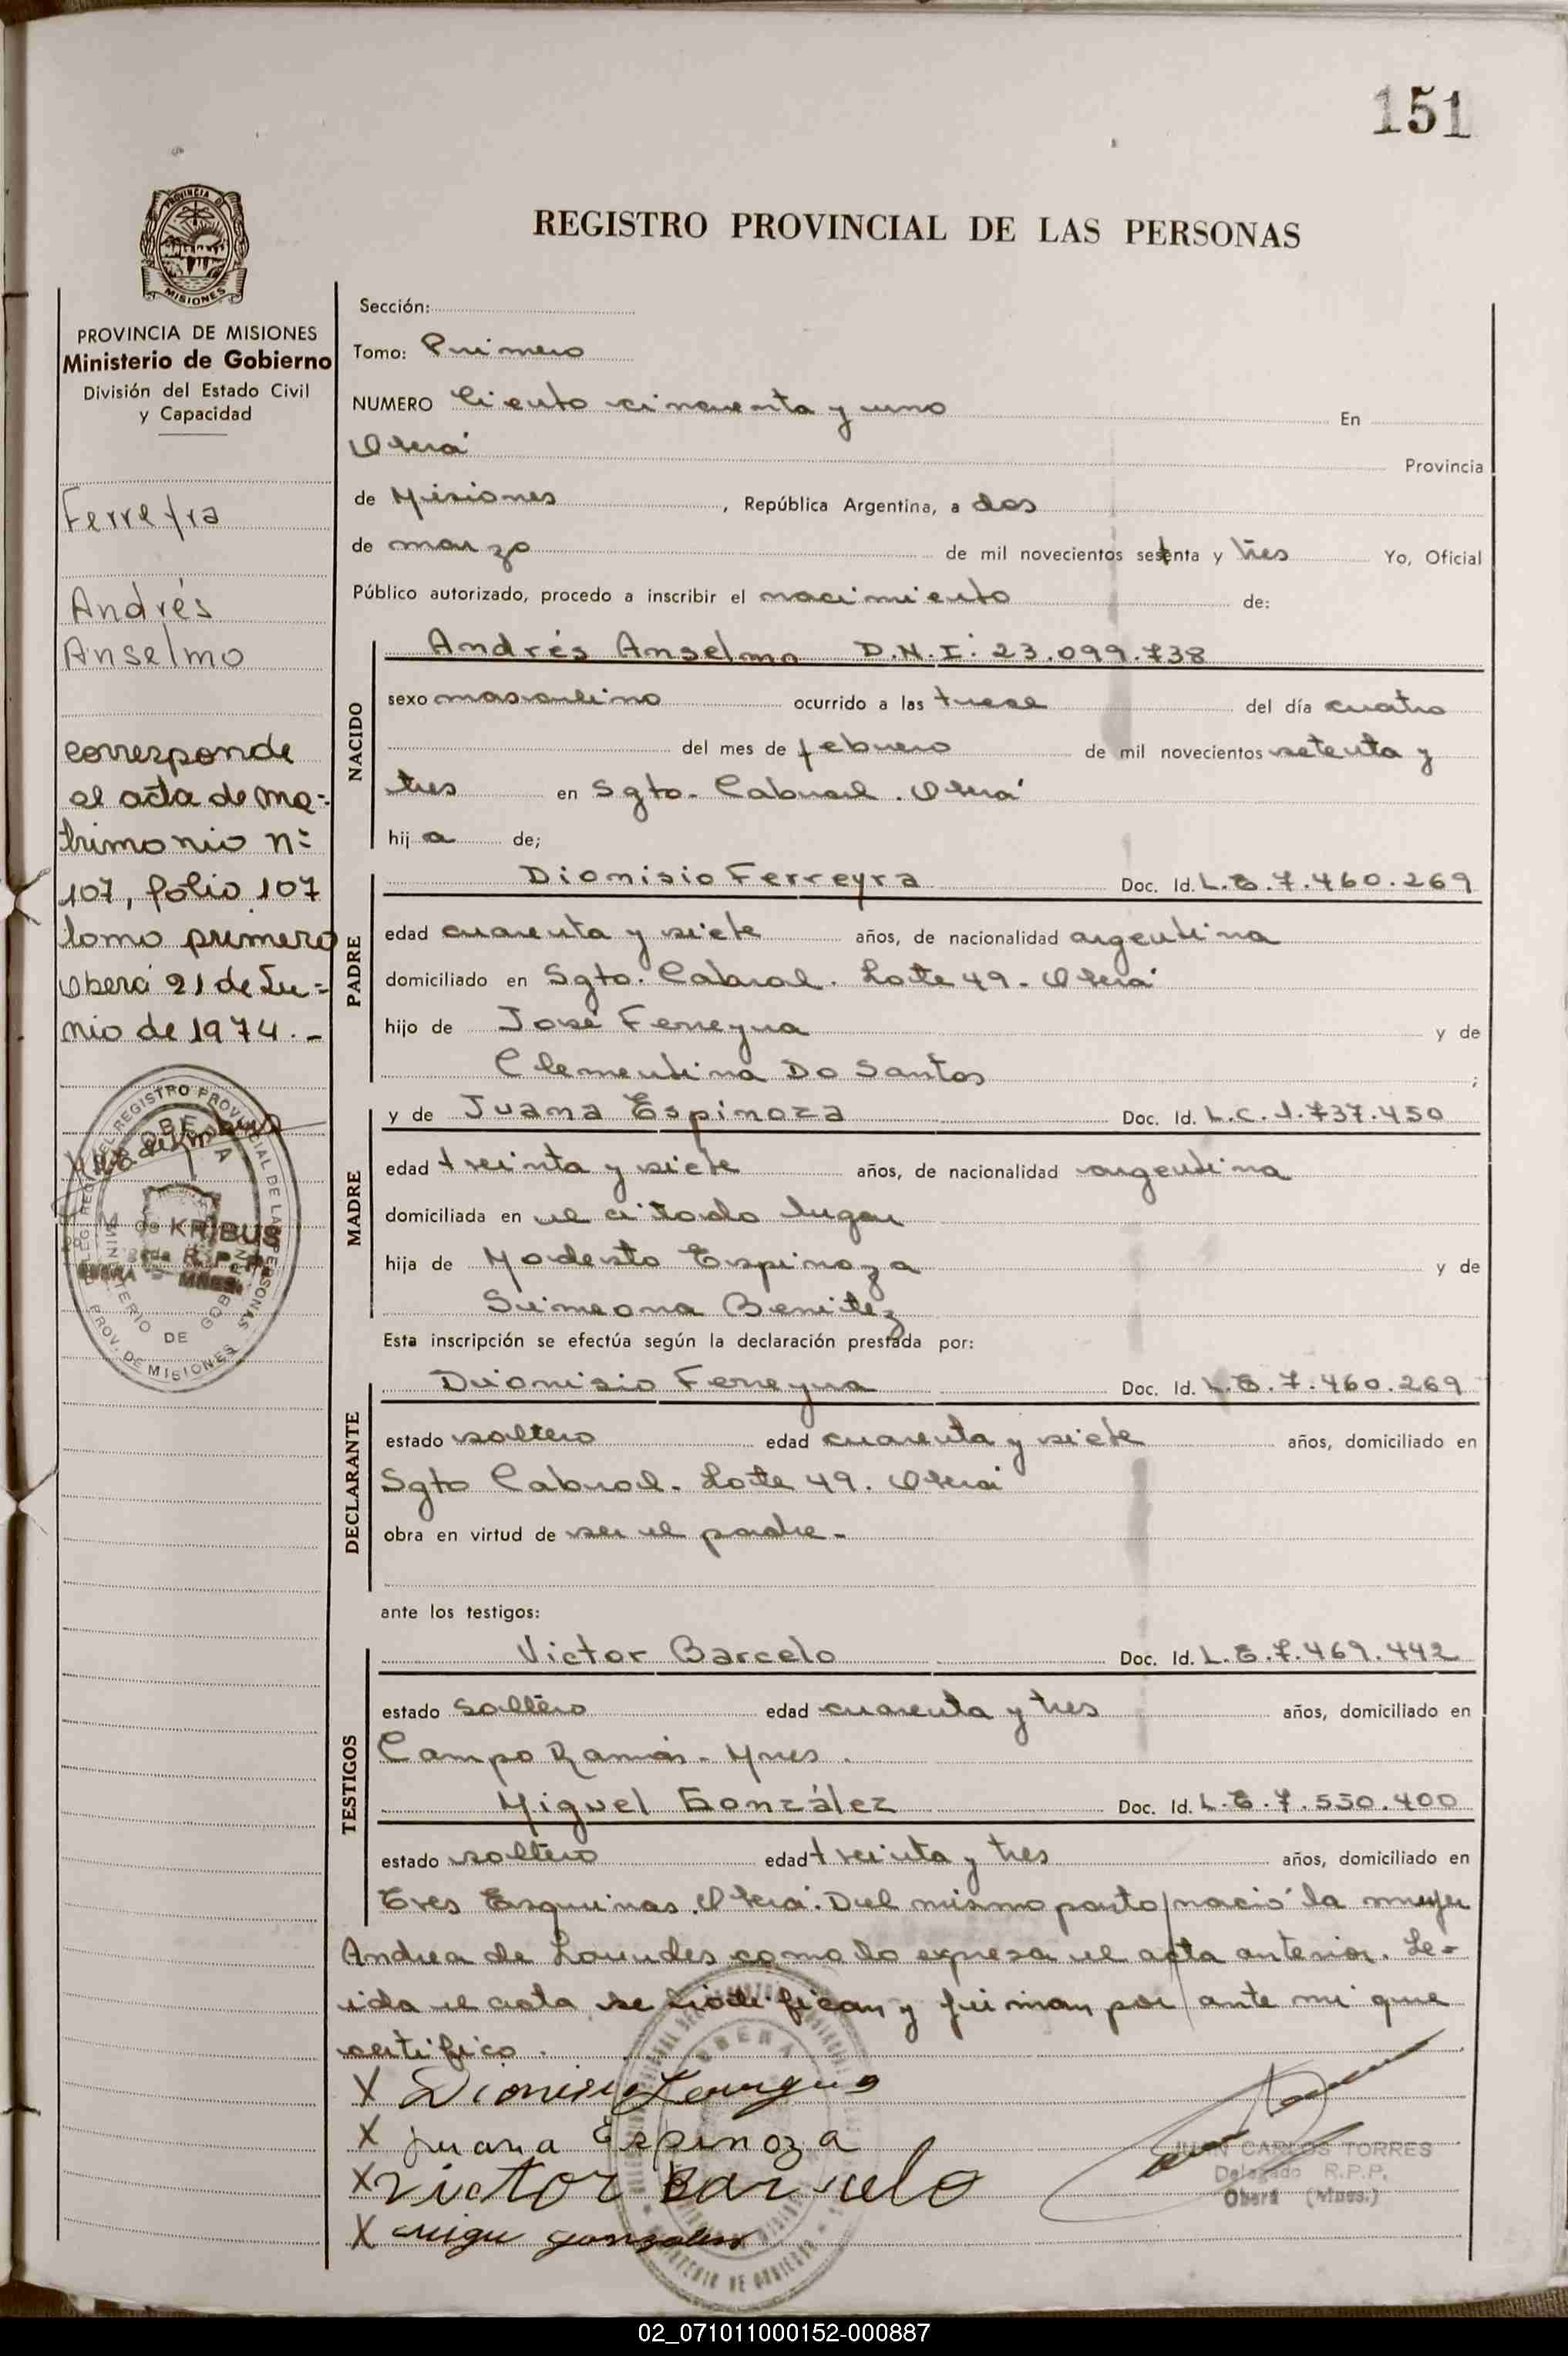 151
PROVINCIA DE
MISIONES
REGISTRO PROVINCIAL DE LAS PERSONAS
PROVINCIA DE MISIONES
Ministerio de Gobierno
División del Estado Civil
y Capacidad
Ferreyra
Andrés
Anselmo
corresponde
el acta de ma=
trimonio nº
107, folio 107
tomo primero
Oberá 21 de Ju=
nio de 1974.-
KRIBUS
Sección:
Tomo: Primero
NUMERO Ciento cincuenta y uno En
Oberá Provincia
de Misiones, República Argentina, a dos
de marzo de mil novecientos setenta y tres Yo, Oficial
Público autorizado, procedo a inscribir el nacimiento de:
NACIDO
Andrés Anselmo D.N.I: 23.099.738
sexo masculino ocurrido a las trece del día cuatro
del mes de febrero de mil novecientos setenta y
tres en Sgto. Cabral. Oberá
hij a de;
PADRE
Dionisio Ferreyra Doc. Id. L.E.7.460.269
edad cuarenta y siete años, de nacionalidad argentina
domiciliado en Sgto. Cabral. Lote 49. Oberá
hijo de José Ferreyra y de
Clementina Do Santos ;
MADRE
y de Juana Espinoza Doc. Id. L.C.1.737.450
edad treinta y siete años, de nacionalidad argentina
domiciliada en el citado lugar
hija de Modesto Espinoza y de
Simeona Benitez
Esta inscripción se efectúa según la declaración prestada por:
DECLARANTE
Dionisio Ferreyra Doc. Id. L.E.7.460.269
estado soltero edad cuarenta y siete años, domiciliado en
Sgto Cabral. Lote 49. Oberá
obra en virtud de ser el padre.
ante los testigos:
TESTIGOS
Victor Barcelo Doc. Id. L.E.7.469.442
estado soltero edad cuarenta y tres años, domiciliado en
Campo Ramón. Mnes.
Miguel González Doc. Id. L.E.7.530.400
estado soltero edad treinta y tres años, domiciliado en
Tres Esquinas. Oberá. Del mismo parto nació la mujer
Andrea de Lourdes como lo expresa el acta anterior. Le=
ida el acta se ratifican y firman por ante mi que
certifico.
X Dionisio Ferreyra
X Juana Espinoza
X Victor Barcelo
X Migu gonzales
JUAN CARLOS TORRES
Delegado R.P.P.
Oberá (Mnes.)
02_071011000152-000887